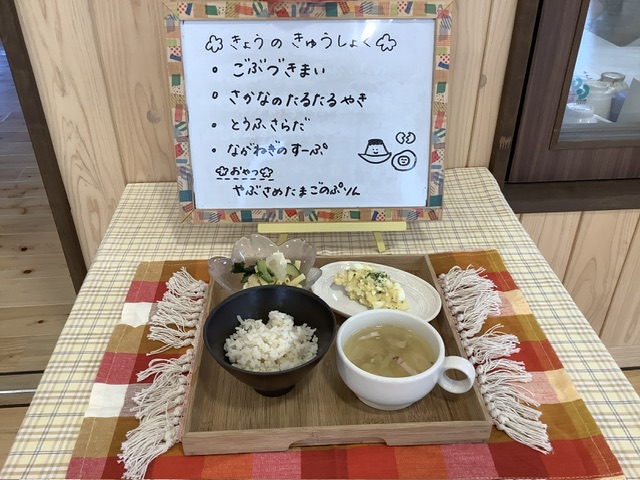 きょうの きゅうしょく
・ごぶづきまい
・さかなのたるたるやき
・とうふさらだ
・ながねぎのすーぷ
おやつ
やぶさめたまごのぷりん